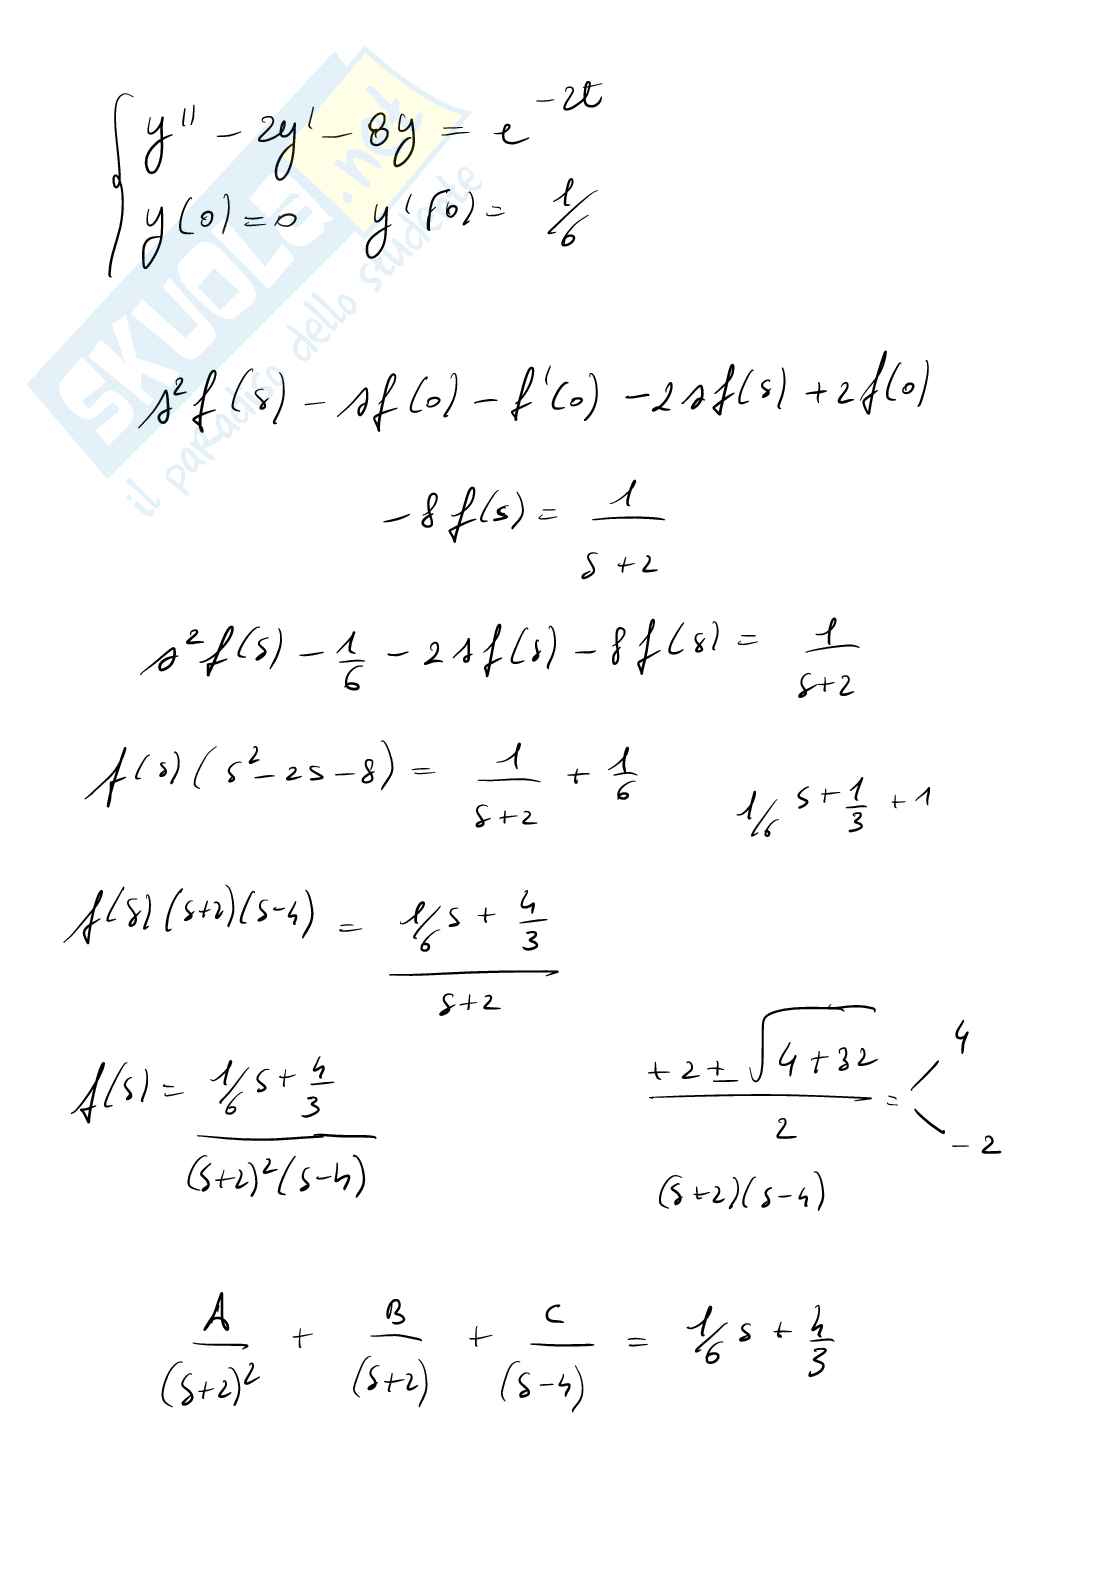 y'' - 2y' - 8y = e^{-2t}
y(0) = 0 y'(0) = 1/6
SKUOLA.net
il paradiso dello studente
s^2 f(s) - s f(0) - f'(0) - 2s f(s) + 2 f(0)
- 8 f(s) = 1/(s+2)
s^2 f(s) - 1/6 - 2s f(s) - 8 f(s) = 1/(s+2)
f(s) (s^2 - 2s - 8) = 1/(s+2) + 1/6 1/6 s + 1/3 + 1
f(s) (s+2)(s-4) = (1/6 s + 4/3)/(s+2)
f(s) = (1/6 s + 4/3)/((s+2)^2 (s-4)) (+2 ± √(4+32))/2 = 4, -2
(s+2)(s-4)
A/(s+2)^2 + B/(s+2) + C/(s-4) = 1/6 s + 4/3